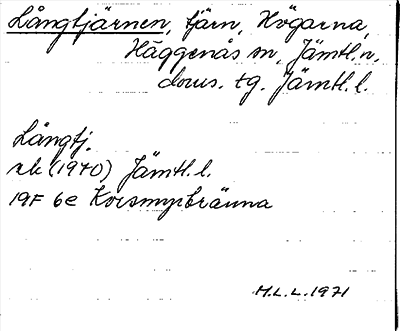 Långtjärnen, tjärn, Högarna,
Häggenås sn, Jämtl.n.
doms. tg. Jämtl. l.
Långtj.
rk (1940) Jämtl. l.
19F 6e Korsmyrbränna
M.L.L. 1971